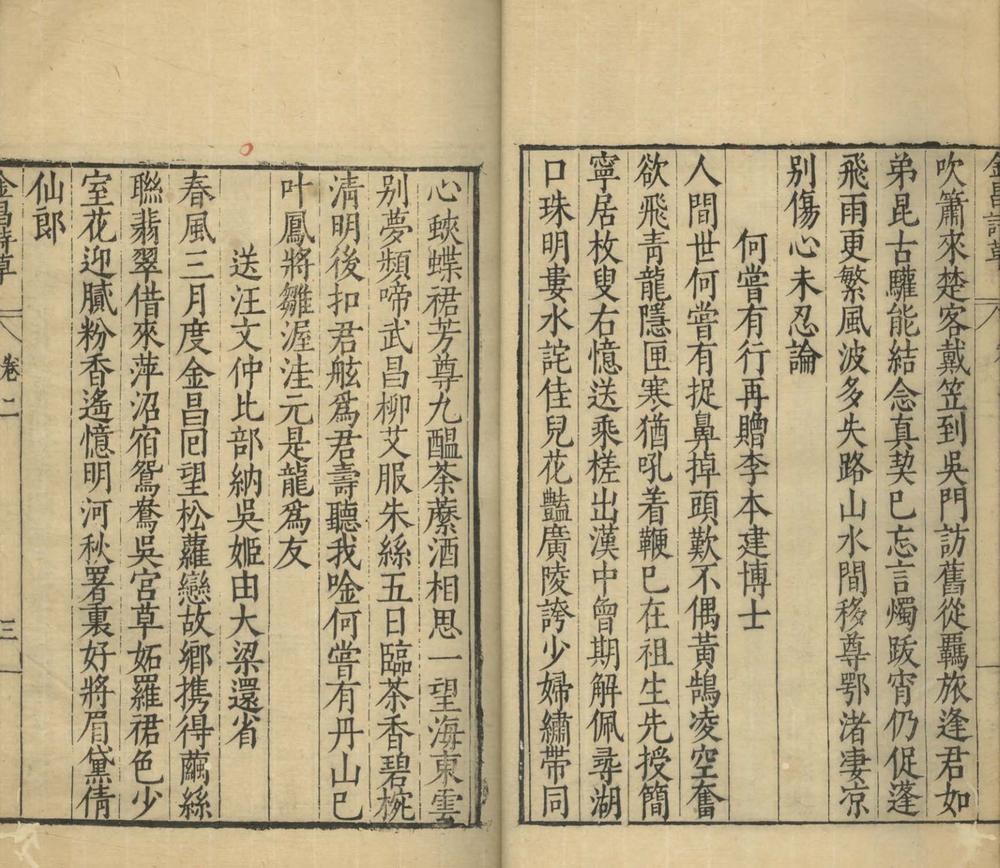 吹簫來楚客戴笠到吳門訪舊從羈旅逢君如
弟昆古驩能結念真契已忘言燭跋宵仍促蓬
飛雨更繁風波多失路山水間移尊鄂渚凄凉
別傷心未忍論
何嘗有行再贈李本建博士
人間世何嘗有捉鼻掉頭歎不偶黃鵠凌空奮
欲飛青龍隱匣寒猶吼着鞭已在祖生先授簡
寧居枚叟右憶送乘槎出漢中曾期解佩尋湖
口珠明婁水詫佳兒花豔廣陵誇少婦繡帶同
心蛺蝶裙芳尊九醞荼蘼酒相思一望海東雲
別夢頻啼武昌柳艾服朱絲五日臨茶香碧椀
清明後扣君舷爲君壽聽我唫何嘗有丹山巳
叶鳳將雛渥洼元是龍爲友
送汪文仲比部納吳姬由大梁還省
春風三月度金昌囘望松蘿戀故鄉携得繭絲
聯翡翠借來萍沼宿鴛鴦吳宮草妬羅裙色少
室花迎膩粉香遙憶明河秋署裏好將眉黛倩
仙郎
金昌詩草 卷二 三